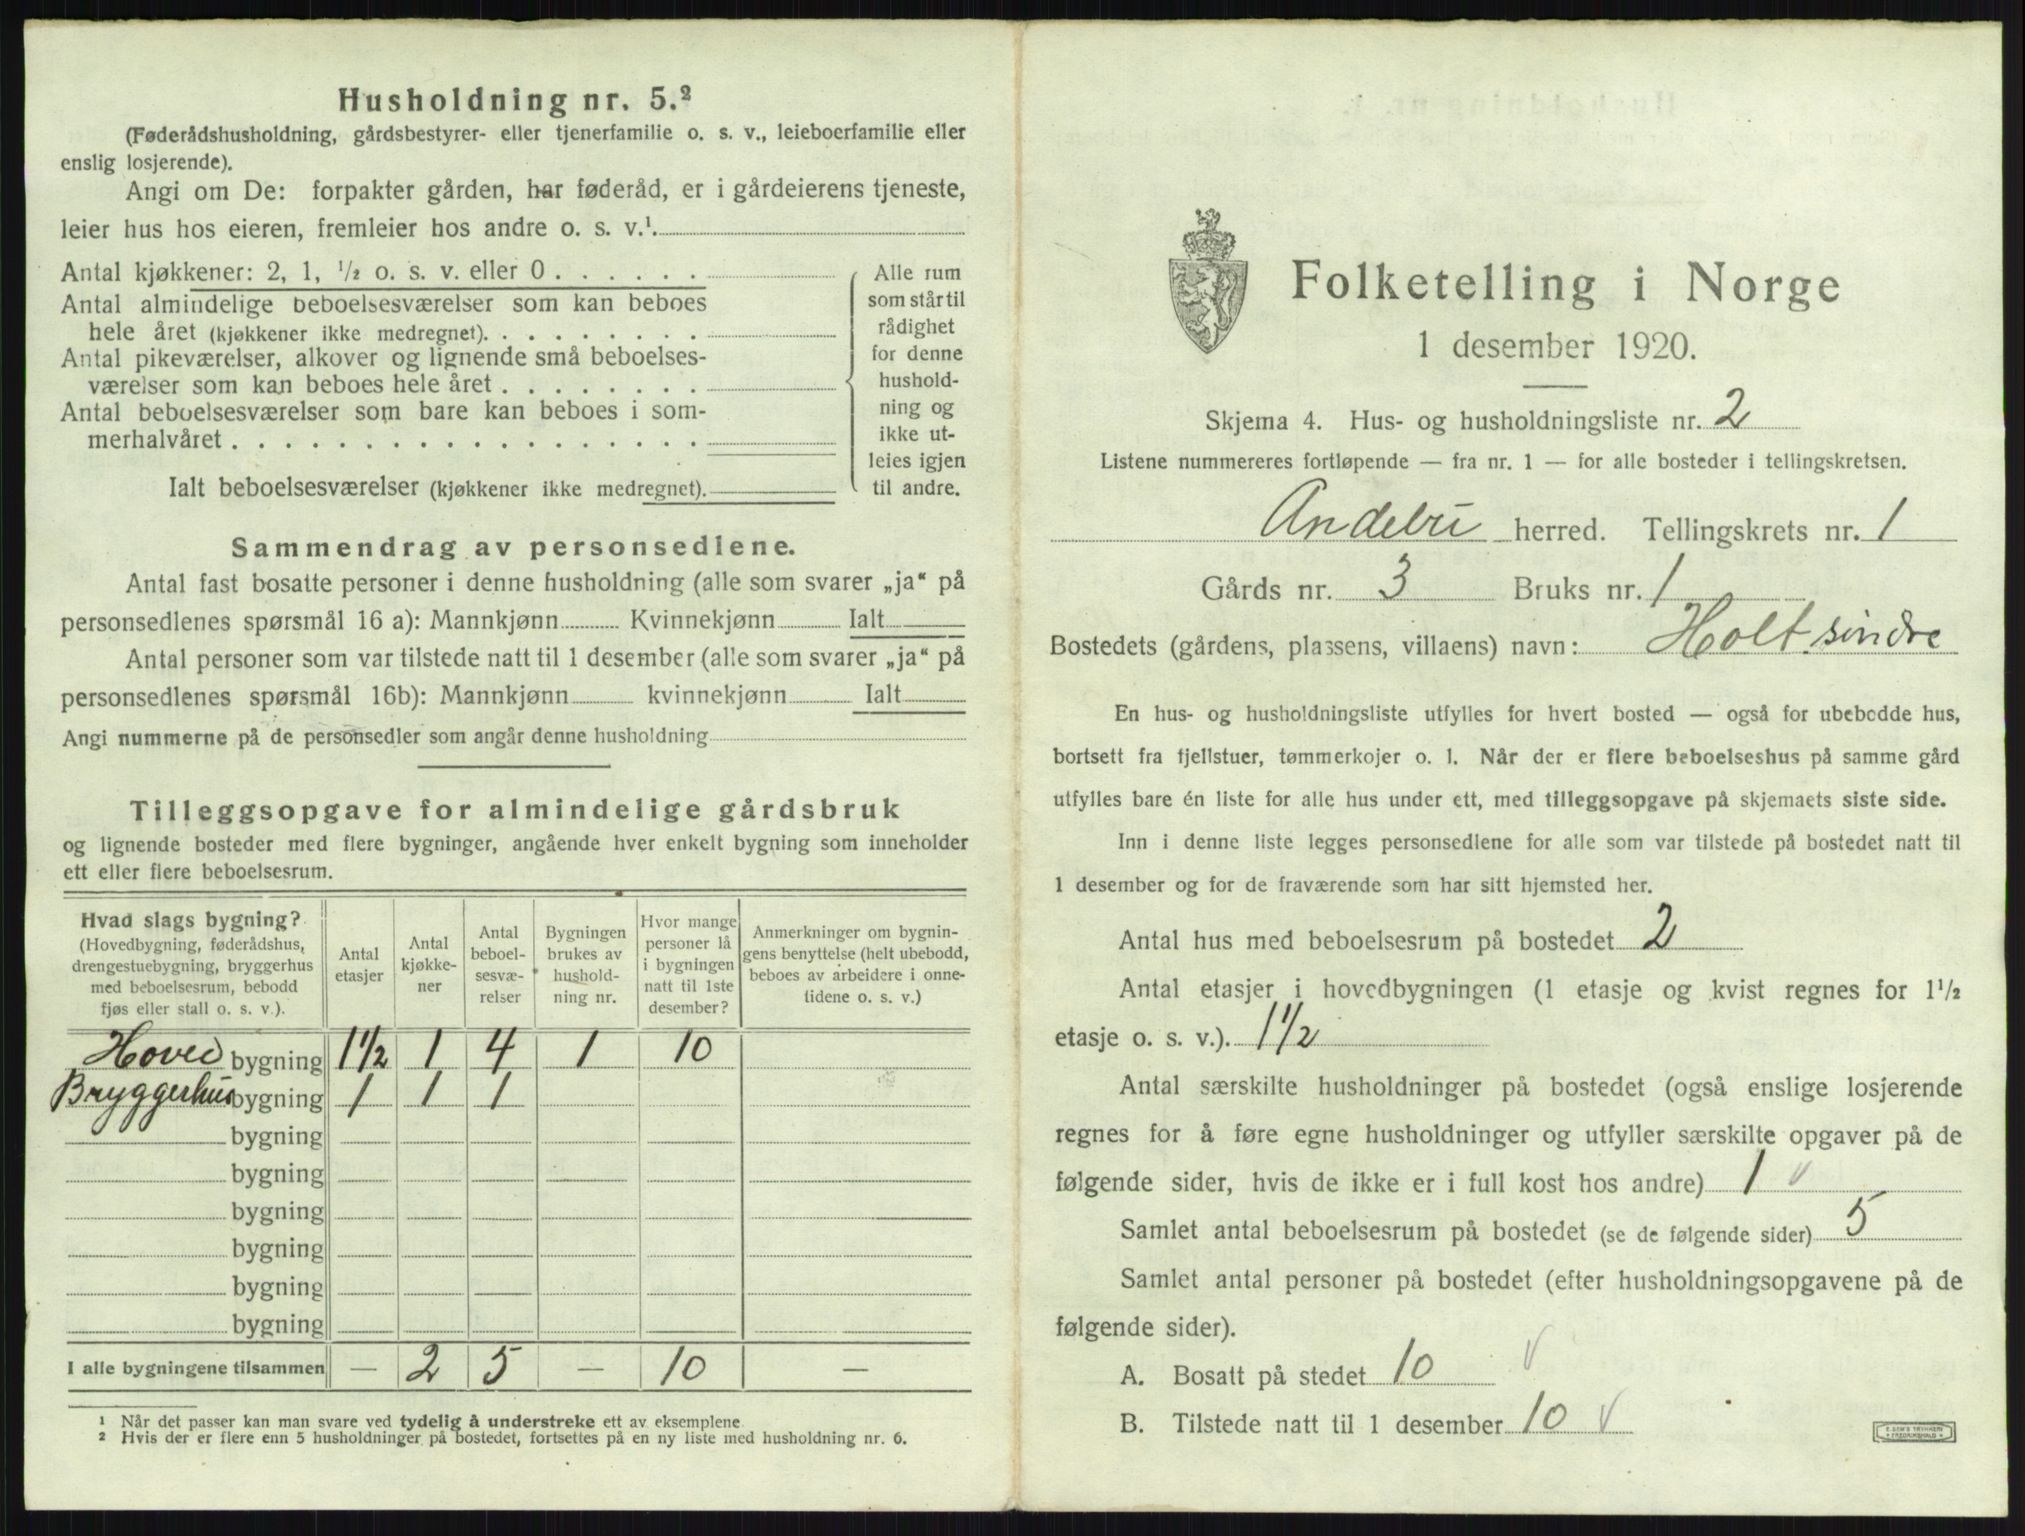 Husholdning nr. 5.²
(Føderådshusholdning, gårdsbestyrer- eller tjenerfamilie o. s. v., leieboerfamilie eller
enslig losjerende).
Angi om De: forpakter gården, har føderåd, er i gårdeierens tjeneste,
leier hus hos eieren, fremleier hos andre o. s. v.¹.
Antal kjøkkener: 2, 1, ½ o. s. v. eller 0 . . . . . .
Antal almindelige beboelsesværelser som kan beboes
hele året (kjøkkener ikke medregnet). . . . . . . . .
Antal pikeværelser, alkover og lignende små beboelses-
værelser som kan beboes hele året . . . . . . . .
Antal beboelsesværelser som bare kan beboes i som-
merhalvåret . . . . . . . . . . . . . . . . . .
Ialt beboelsesværelser (kjøkkener ikke medregnet).
Alle rum
som står til
rådighet
for denne
hushold-
ning og
ikke ut-
leies igjen
til andre.
Sammendrag av personsedlene.
Antal fast bosatte personer i denne husholdning (alle som svarer „ja“ på
personsedlenes spørsmål 16 a): Mannkjønn Kvinnekjønn Ialt
Antal personer som var tilstede natt til 1 desember (alle som svarer „ja“ på
personsedlenes spørsmål 16b): Mannkjønn kvinnekjønn Ialt
Angi nummerne på de personsedler som angår denne husholdning
Tilleggsopgave for almindelige gårdsbruk
og lignende bosteder med flere bygninger, angående hver enkelt bygning som inneholder
ett eller flere beboelsesrum.
Hvad slags bygning?
(Hovedbygning, føderådshus,
drengestuebygning, bryggerhus
med beboelsesrum, bebodd
fjøs eller stall o. s. v.).
Antal
etasjer
Antal
kjøkke-
ner
Antal
beboel-
sesvæ-
relser
Bygningen
brukes av
hushold-
ning nr.
Hvor mange
personer lå
i bygningen
natt til 1ste
desember?
Anmerkninger om bygnin-
gens benyttelse (helt ubebodd,
beboes av arbeidere i onne-
tidene o. s. v.)
Hoved bygning 1½ 1 4 1 10
Bryggerhus bygning 1 1 1
bygning
bygning
bygning
bygning
bygning
bygning
I alle bygningene tilsammen — 2 5 — 10 —
¹ Når det passer kan man svare ved tydelig å understreke ett av eksemplene.
² Hvis der er flere enn 5 husholdninger på bostedet, fortsettes på en ny liste med husholdning nr. 6.
Folketelling i Norge
1 desember 1920.
Skjema 4. Hus- og husholdningsliste nr. 2
Listene nummereres fortløpende — fra nr. 1 — for alle bosteder i tellingskretsen.
Andebu herred. Tellingskrets nr. 1
Gårds nr. 3 Bruks nr. 1
Bostedets (gårdens, plassens, villaens) navn: Holt søndre
En hus- og husholdningsliste utfylles for hvert bosted — også for ubebodde hus,
bortsett fra fjellstuer, tømmerkojer o. l. Når der er flere beboelseshus på samme gård
utfylles bare én liste for alle hus under ett, med tilleggsopgave på skjemaets siste side.
Inn i denne liste legges personsedlene for alle som var tilstede på bostedet natt til
1 desember og for de fraværende som har sitt hjemsted her.
Antal hus med beboelsesrum på bostedet 2
Antal etasjer i hovedbygningen (1 etasje og kvist regnes for 1½
etasje o. s. v.). 1½
Antal særskilte husholdninger på bostedet (også enslige losjerende
regnes for å føre egne husholdninger og utfyller særskilte opgaver på de
følgende sider, hvis de ikke er i full kost hos andre) 1 v
Samlet antal beboelsesrum på bostedet (se de følgende sider) 5
Samlet antal personer på bostedet (efter husholdningsopgavene på de
følgende sider).
A. Bosatt på stedet 10 v
B. Tilstede natt til 1 desember 10 v